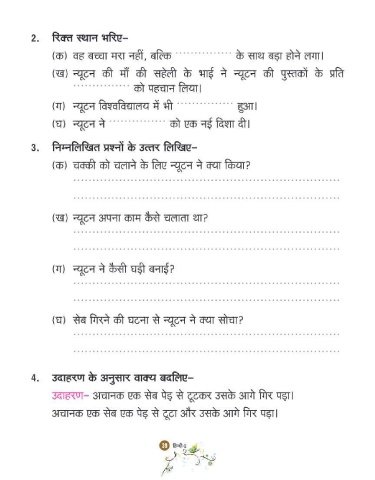 2. रिक्त स्थान भरिए–
(क) वह बच्चा मरा नहीं, बल्कि ................ के साथ बड़ा होने लगा।
(ख) न्यूटन की माँ की सहेली के भाई ने न्यूटन की पुस्तकों के प्रति
................ को पहचान लिया।
(ग) न्यूटन विश्वविद्यालय में भी ................ हुआ।
(घ) न्यूटन ने ................ को एक नई दिशा दी।
3. निम्नलिखित प्रश्नों के उत्तर लिखिए–
(क) चक्की को चलाने के लिए न्यूटन ने क्या किया?
(ख) न्यूटन अपना काम कैसे चलाता था?
(ग) न्यूटन ने कैसी घड़ी बनाई?
(घ) सेब गिरने की घटना से न्यूटन ने क्या सोचा?
4. उदाहरण के अनुसार वाक्य बदलिए–
उदाहरण– अचानक एक सेब पेड़ से टूटकर उसके आगे गिर पड़ा।
अचानक एक सेब एक पेड़ से टूटा और उसके आगे गिर पड़ा।